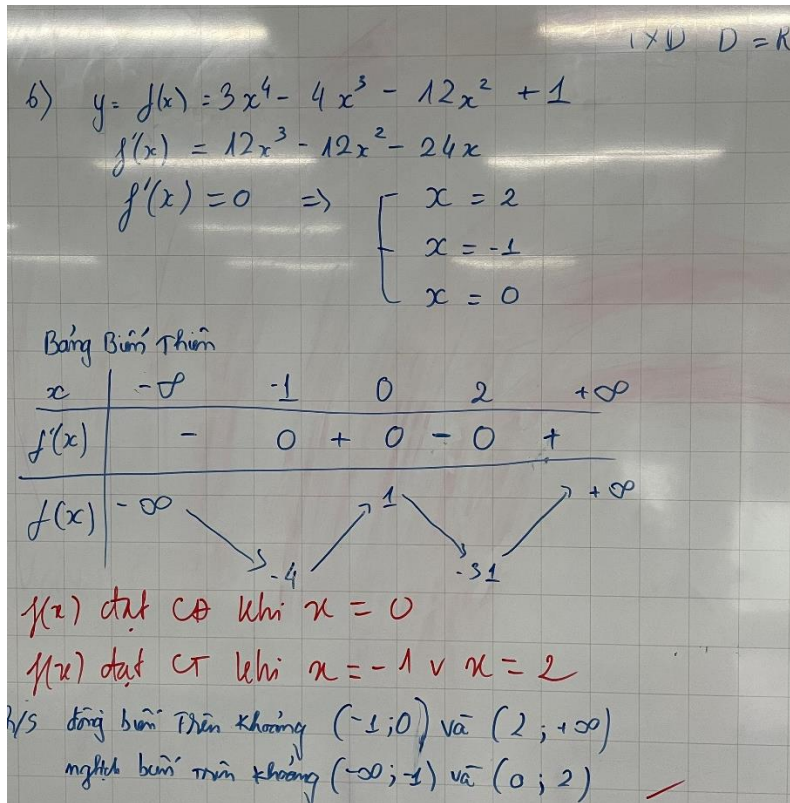 TXD D = R
b) y = f(x) = 3x⁴ - 4x³ - 12x² + 1
f'(x) = 12x³ - 12x² - 24x
f'(x) = 0 => [ x = 2
x = -1
x = 0
Bảng Biến Thiên
x -∞ -1 0 2 +∞
f'(x) - 0 + 0 - 0 +
f(x) -∞ ↘ -4 ↗ 1 ↘ -31 ↗ +∞
f(x) đạt CĐ khi x = 0
f(x) đạt CT khi x = -1 v x = 2
h/s đồng biến Trên khoảng (-1;0) và (2; +∞)
nghịch biến trên khoảng (-∞; -1) và (0; 2)